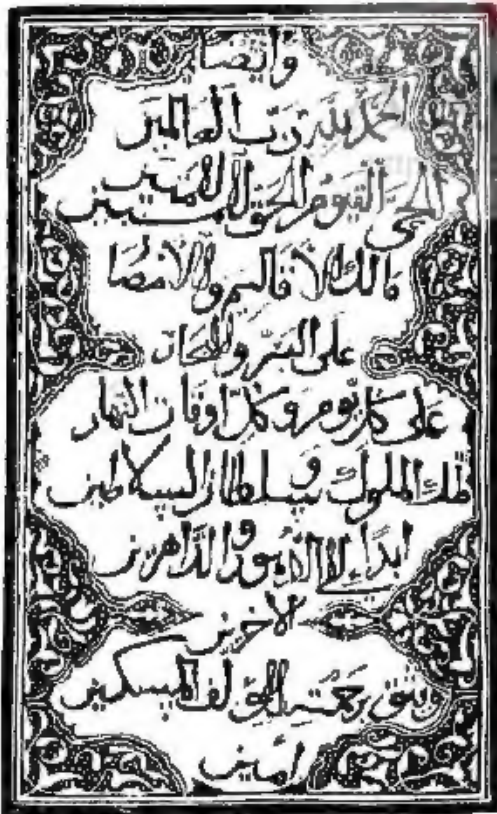 وايضا
الحمد لله رب العالمين
الحي القيوم الحق الامين
مالك الاقاليم والامصا
على البر والبحار
على كل يوم وكل اوقات النهار
ملك الملوك وسلطان السلاطين
ابدا الى والداهرين
الاخرين
برحمته المولف المسكين
امين